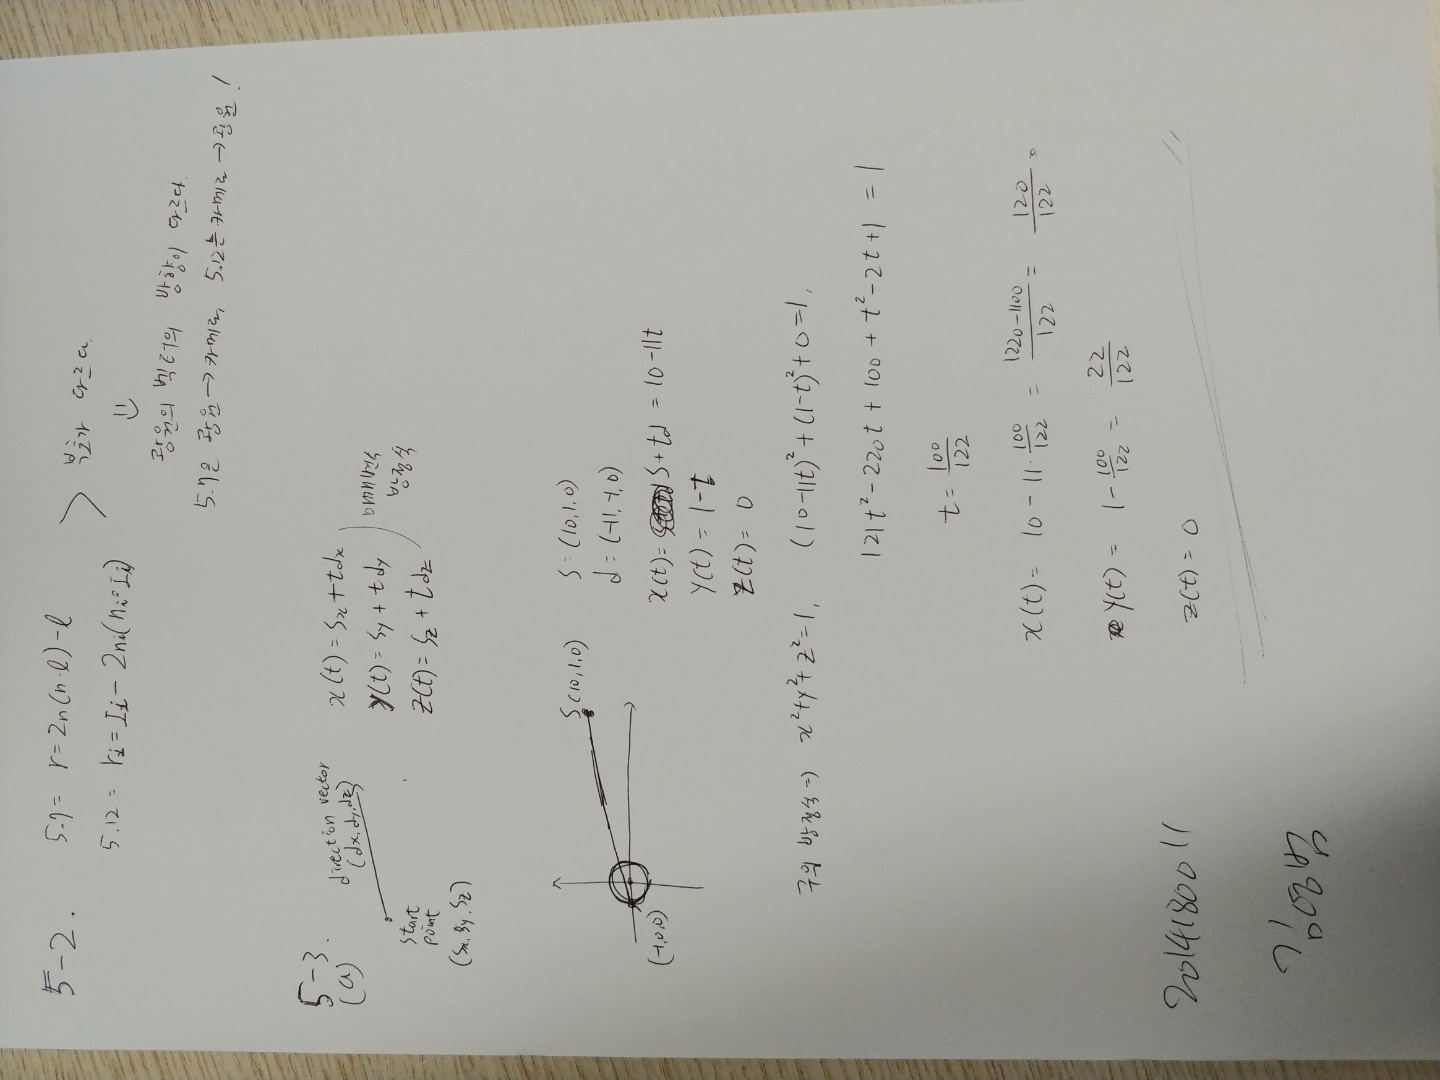 5-2. 5.7 = r = 2n(n·l) - l
5.12 = rᵢ = Iᵢ - 2nᵢ(nᵢ∘Iᵢ) > 부호가 다르다.
광원의 벡터의 방향이 다르다.
5.7은 광원→카메라, 5.12는 카메라→광원!
5-3.
(a)
direction vector
(dx, dy, dz)
start
point
(Sx, Sy, Sz)
x(t) = Sx + tdx
y(t) = Sy + tdy
z(t) = Sz + tdz
매개변수
방정식
S(10,1,0)
(-1,0,0)
S = (10,1,0)
d = (-11,-1,0)
x(t) = S + td = 10 - 11t
y(t) = 1 - t
z(t) = 0
구의 방정식 ⇒ x² + y² + z² = 1, (10-11t)² + (1-t)² + 0 = 1,
121t² - 220t + 100 + t² - 2t + 1 = 1
t = 100/122
x(t) = 10 - 11 · 100/122 = 1220-1100/122 = 120/122
y(t) = 1 - 100/122 = 22/122
z(t) = 0
2014180011
김영범